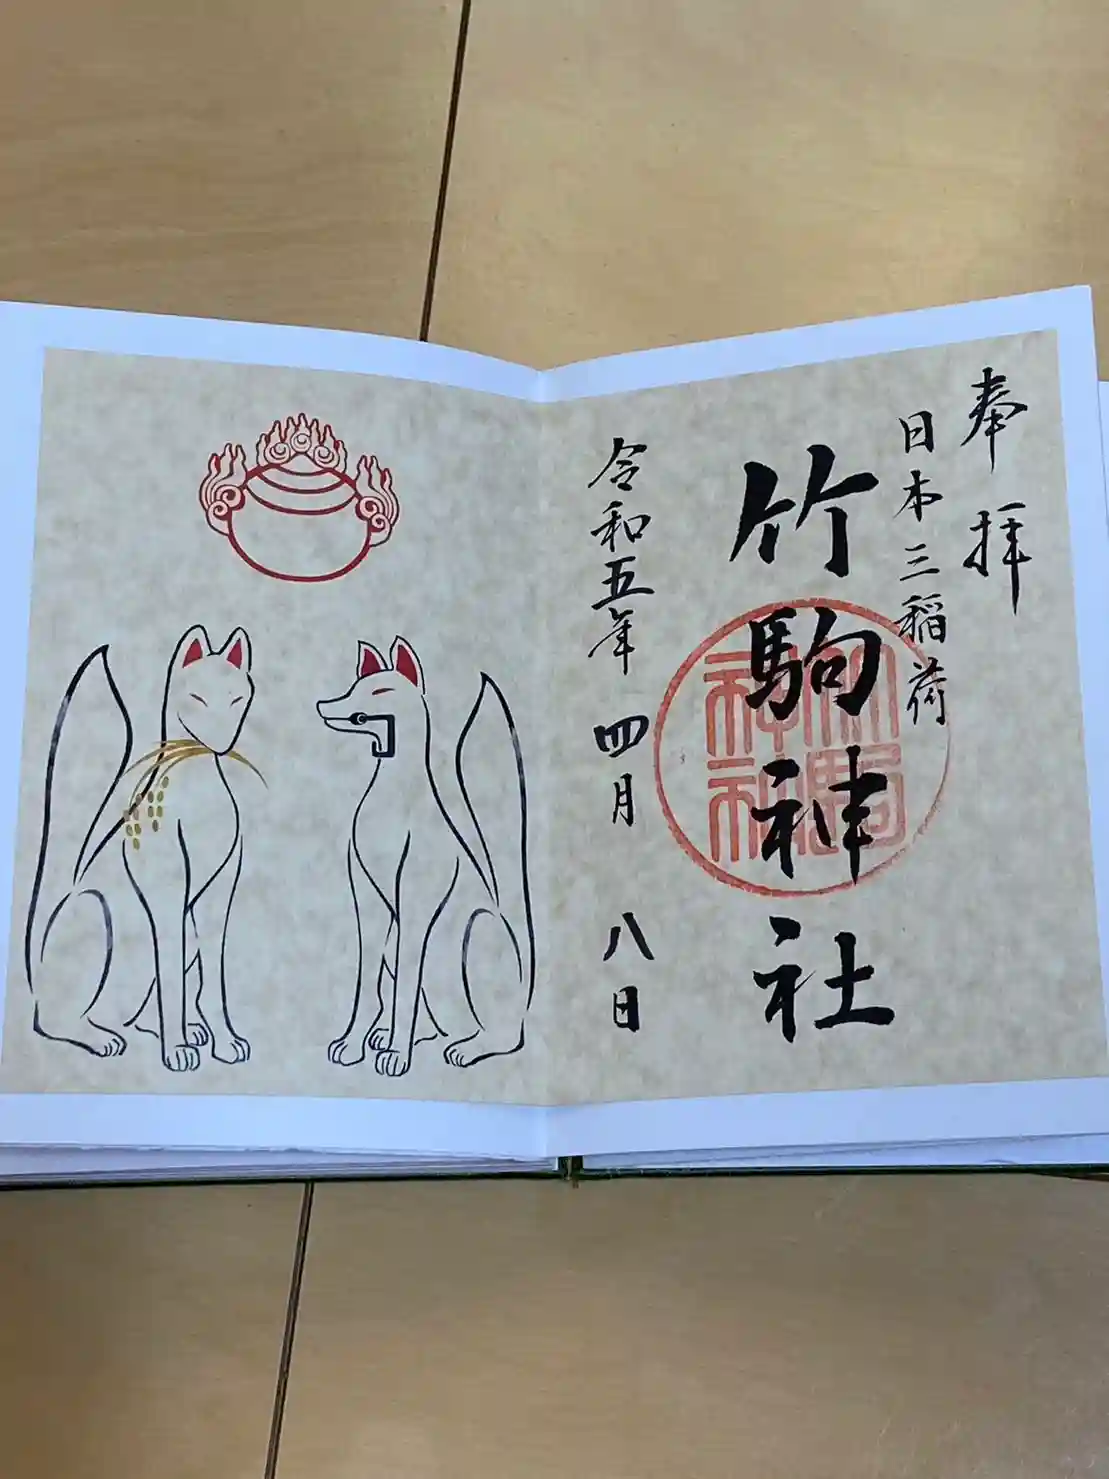 奉拝
日本三稲荷
竹駒神社
竹駒
神社
令和五年 四月 八日